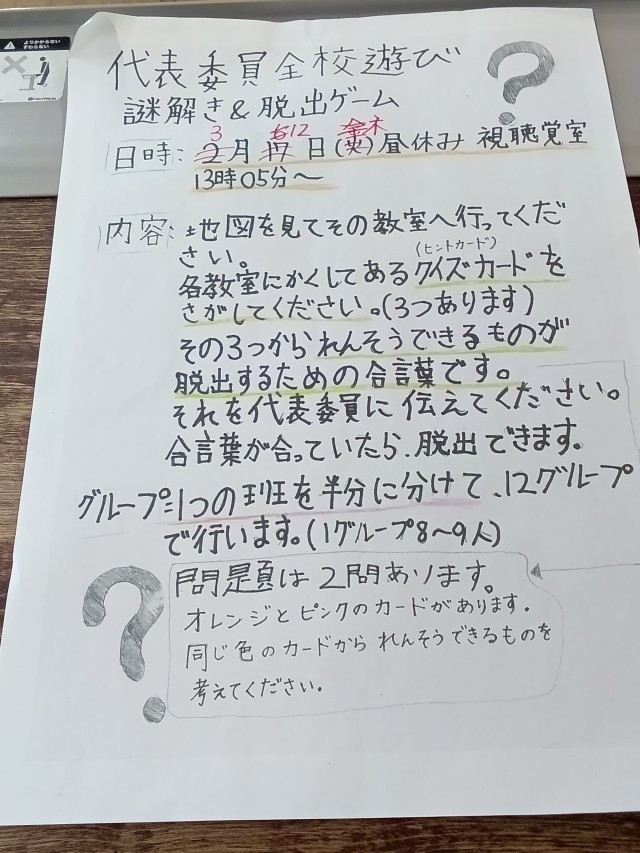 よりかからない
すわらない
代表委員全校遊び
謎解き&脱出ゲーム
3 512 金木
日時:2月17日(火)昼休み 視聴覚室
13時05分〜
内容:地図を見てその教室へ行ってくだ
さい。
(ヒントカード)
各教室にかくしてあるクイズカードを
さがしてください。(3つあります)
その3つかられんそうできるものが
脱出するための合言葉です。
それを代表委員に伝えてください。
合言葉が合っていたら、脱出できます。
グループ:1つの班を半分に分けて、12グループ
で行います。(1グループ8〜9人)
問題は2問あります。
オレンジとピンクのカードがあります。
同じ色のカードかられんそうできるものを
考えてください。